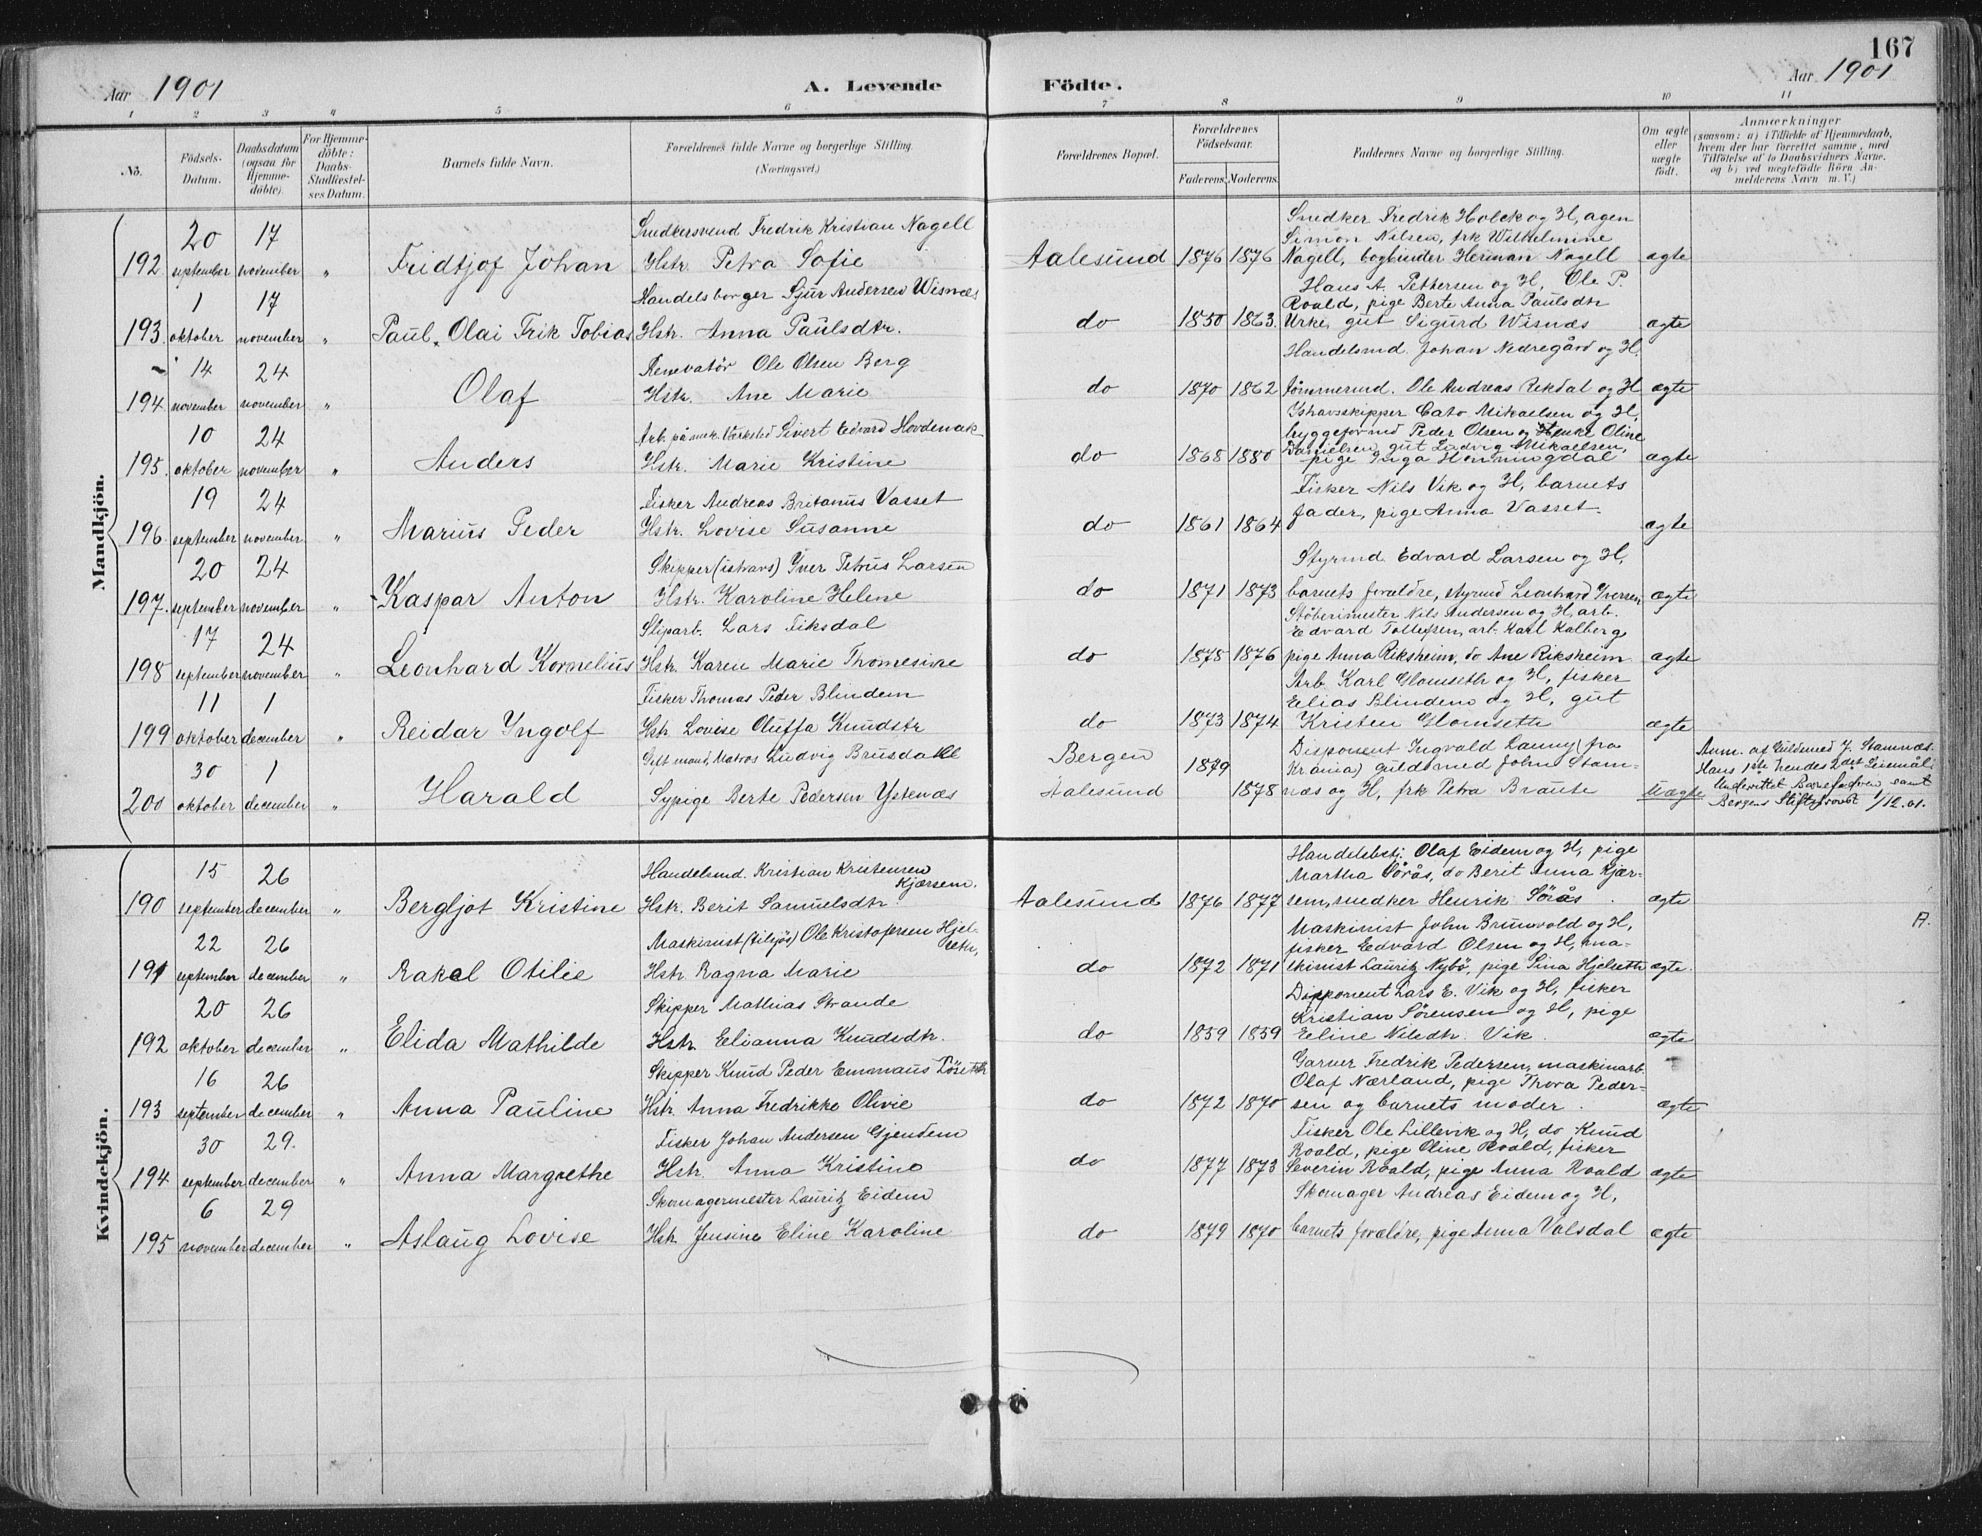 167
Aar 1901 A. Levende Födte. Aar 1901
1 2 3 4 5 6 7 8 9 10 11
No. Födsels-Datum. Daabsdatum (ogsaa for Hjemme-döbte). For Hjemme-döbte: Daabs-Stadfæstel-ses Datum. Barnets fulde Navn. Forældrenes fulde Navne og borgerlige Stilling. (Næringsvei.) Forældrenes Bopæl. Forældrenes Födselsaar. Faderens. Moderens. Faddernes Navne og borgerlige Stilling. Om ægte eller uægte födt. Anmærkninger (saasom: a) i Tilfælde af Hjemmedaab, hvem der har forrettet samme, med Tilföielse af to Daabsvidners Navne, og b) ved uægtefödte Börn Anmelderens Navn m. V.)
Mandkjön.
20 17 Snedkersvend Fredrik Kristian Nagell Snedker Fredrik Holck og H, agen
Simon Nilsen, frk Wilhelmine
192 september november " Fridtjof Johan Hstr. Petra Sofie Aalesund 1876 1876 Nagell, bogbinder Herman Nagell ægte
1 17 Handelsborger Sjur Andersen Wisnæs Hans A. Pettersen og H, Ole P.
Roald, pige Berte Anna Paulsdtr
193. oktober november " Paul Olai Erik Tobias Hstr. Anna Paulsdtr. do 1850 1863. Urke, gut Sigurd Wisnæs ægte
14 24 Renovatør Ole Olsen Berg Handelsmd. Johan Nedregård og H.
194 november november " Olaf Hstr. Ane Marie do 1870 1862 Tömmermd. Ole Andreas Rekdal og H ægte
10 24 Arb. på mek. Værksted Sivert Edvard Hovdenak Ishavsskipper Cato Mikaelsen og H,
byggeformd Peder Olsen og Enke Oline
Danielsen, gut Ludvig Mikaelsen,
195. oktober november " Anders Hstr. Marie Kristine do 1868 1880 pige Inga Honningdal ægte
19 24 Fisker Andreas Britanus Vasset Fisker Nils Vik og H, barnets
196 september november " Marius Peder Hstr. Lovise Susanne do 1861 1864 fader, pige Anna Vasset. ægte
20 24 Skipper (ishavs) Iver Petrus Larsen Styrmd Edvard Larsen og H,
197. september november " Kaspar Anton Hstr. Karoline Helene do 1871 1873 barnets forældre, styrmd Leonhard Iversen ægte
17 24 Sliparb. Lars Fiksdal Støberimester Nils Andersen og H, arb.
Edvard Tollefsen, arb. Karl Kalberg
198 september november " Leonhard Kornelius Hstr. Karen Marie Thomesine do 1878 1876 pige Anna Riksheim, do Ane Riksheim ægte
11 1 Fisker Thomas Peder Blindem Arb. Karl Glomseth og H, fisker
Elias Blindem og H, gut
199 oktober december " Reidar Yngolf Hstr Lovise Oluffa Knudstr do 1873 1874 Kristen Glomseth ægte
30 1 Gift mand, Matros Ludvig Brusdahl Bergen 1879 Disponent Ingvald Lanny (fra Anm. af Guldsmed J. Stamnæs.
Krania) guldsmed John Stam- Hans 1ste hendes 2det Leiemål.
200 oktober december " Harald Sypige Berte Pedersen Ystenæs Aalesund 1878 næs og H, frk Petra Braute Uægte Underrettet Barnefaderen samt
Bergens Stiftsprovst 1/12.01.
Kvindekjön.
15 26 Handelsmd. Kristian Kristensen Kjærsem. Handelsbetj. Olaf Eidem og H, pige
Martha Sörås, do Berit Anna Kjær-
190 september december " Bergljot Kristine Hstr. Berit Samuelsdtr Aalesund 1876 1877 sem, snedker Henrik Sörås. ægte
22 26 Maskinist (tilsjøs) Ole Kristofersen Hjelseth, Maskinist John Brunvold og H, A.
fisker Edvard Olsen og H, ma-
191 september december " Rakel Otilie Hstr Ragna Marie do 1872 1871 skinist Lauritz Nybö, pige Sina Hjelseth ægte.
20 26 Skipper Mathias Strande Disponent Lars E. Vik og H, fisker
Kristian Sørensen og H, pige
192 oktober december " Elida Mathilde Hstr. Elianna Knudsdtr. do 1859 1859 Eeline Nilsdtr. Vik. ægte
16 26 Skipper Knud Peder Emmaus Löseth Garver Fredrik Pedersen, maskinarb.
Olaf Nærland, pige Thora Peder-
193 september december " Anna Pauline Hstr. Anna Fredrikke Olivie do 1872 1870 sen og barnets moder. ægte
30 29. Fisker Johan Andersen Gjendem Fisker Ole Lillevik og H, do Knud
Roald, pige Oline Roald, fisker
194 september december " Anna Margrethe Hstr. Anna Kristine do 1877 1873 Severin Roald, pige Anna Roald ægte
6 29 Skomagermester Lauritz Eidem Skomager Andreas Eidem og H,
195 november december " Aslaug Lovise Hstr. Jensine Eline Karoline do 1879 1870 barnets forældre, pige Anna Valsdal ægte